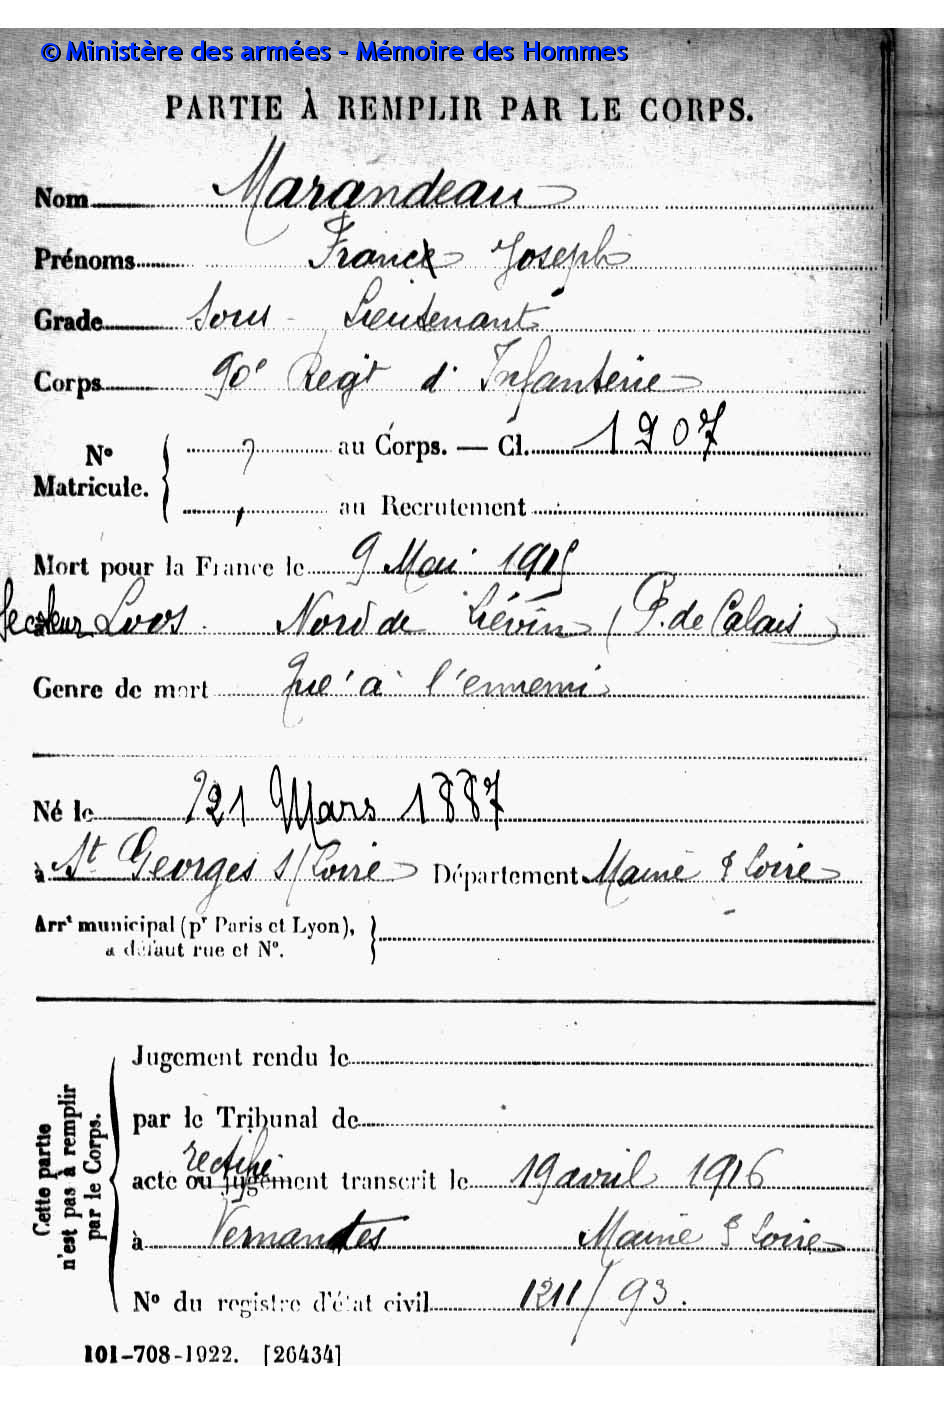 © Ministère des armées - Mémoire des Hommes
PARTIE À REMPLIR PAR LE CORPS.
Nom Marandeau
Prénoms Francx Joseph
Grade Sous-Lieutenant
Corps 90e Regt d'Infanterie
N° Matricule. { au Corps. — Cl. 1907
au Recrutement
Mort pour la France le 9 Mai 1915
à Secteur Loos. Nord de Liévin (P. de Calais)
Genre de mort Tué à l'ennemi
Né le 21 Mars 1887
à St Georges s/Loire Département Maine & Loire
Arrt municipal (pr Paris et Lyon),
à défaut rue et N°.
Cette partie n'est pas à remplir par le Corps.
Jugement rendu le
par le Tribunal de
rectifié
acte ou jugement transcrit le 19 avril 1916
à Vernantes Maine & Loire
N° du registre d'état civil 1211/93.
101-708-1922. [26434]